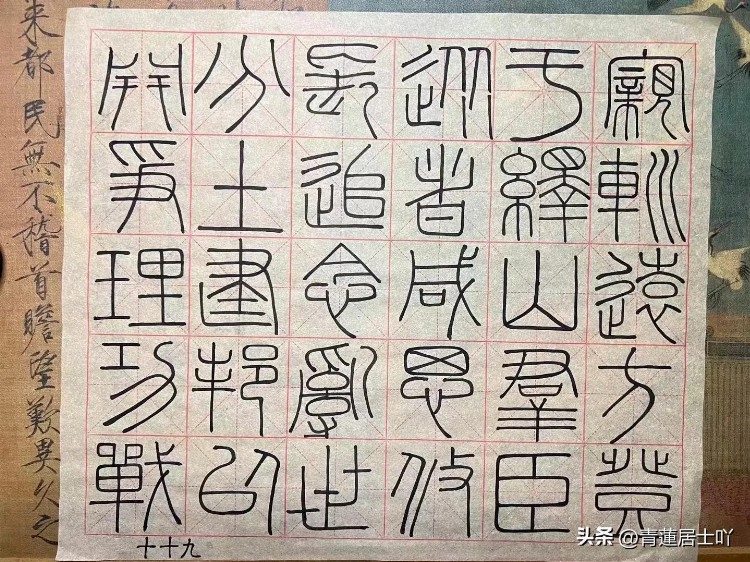 寴䡅遠方登
于繹山羣臣
從者咸思攸
長追念亂世
分土建邦以
開爭理功戰
十十九
來都民無不稽首瞻望歎異久之
头条 @青蓮居士吖